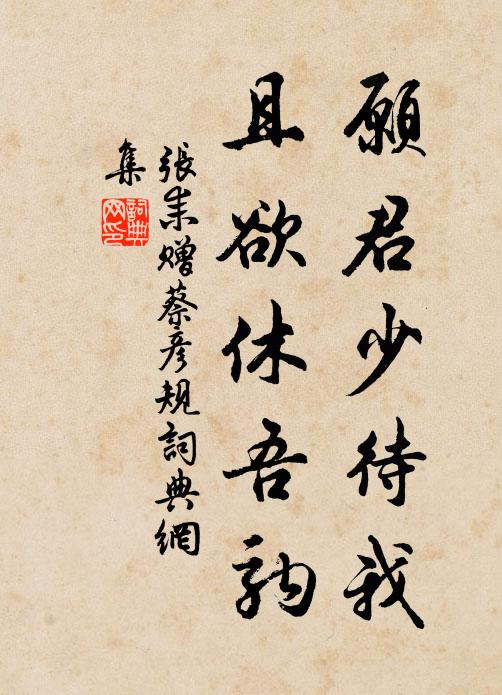 願君少待我
且欲休吾駒
張耒贈蔡彥規詞典網
集
詞典网印